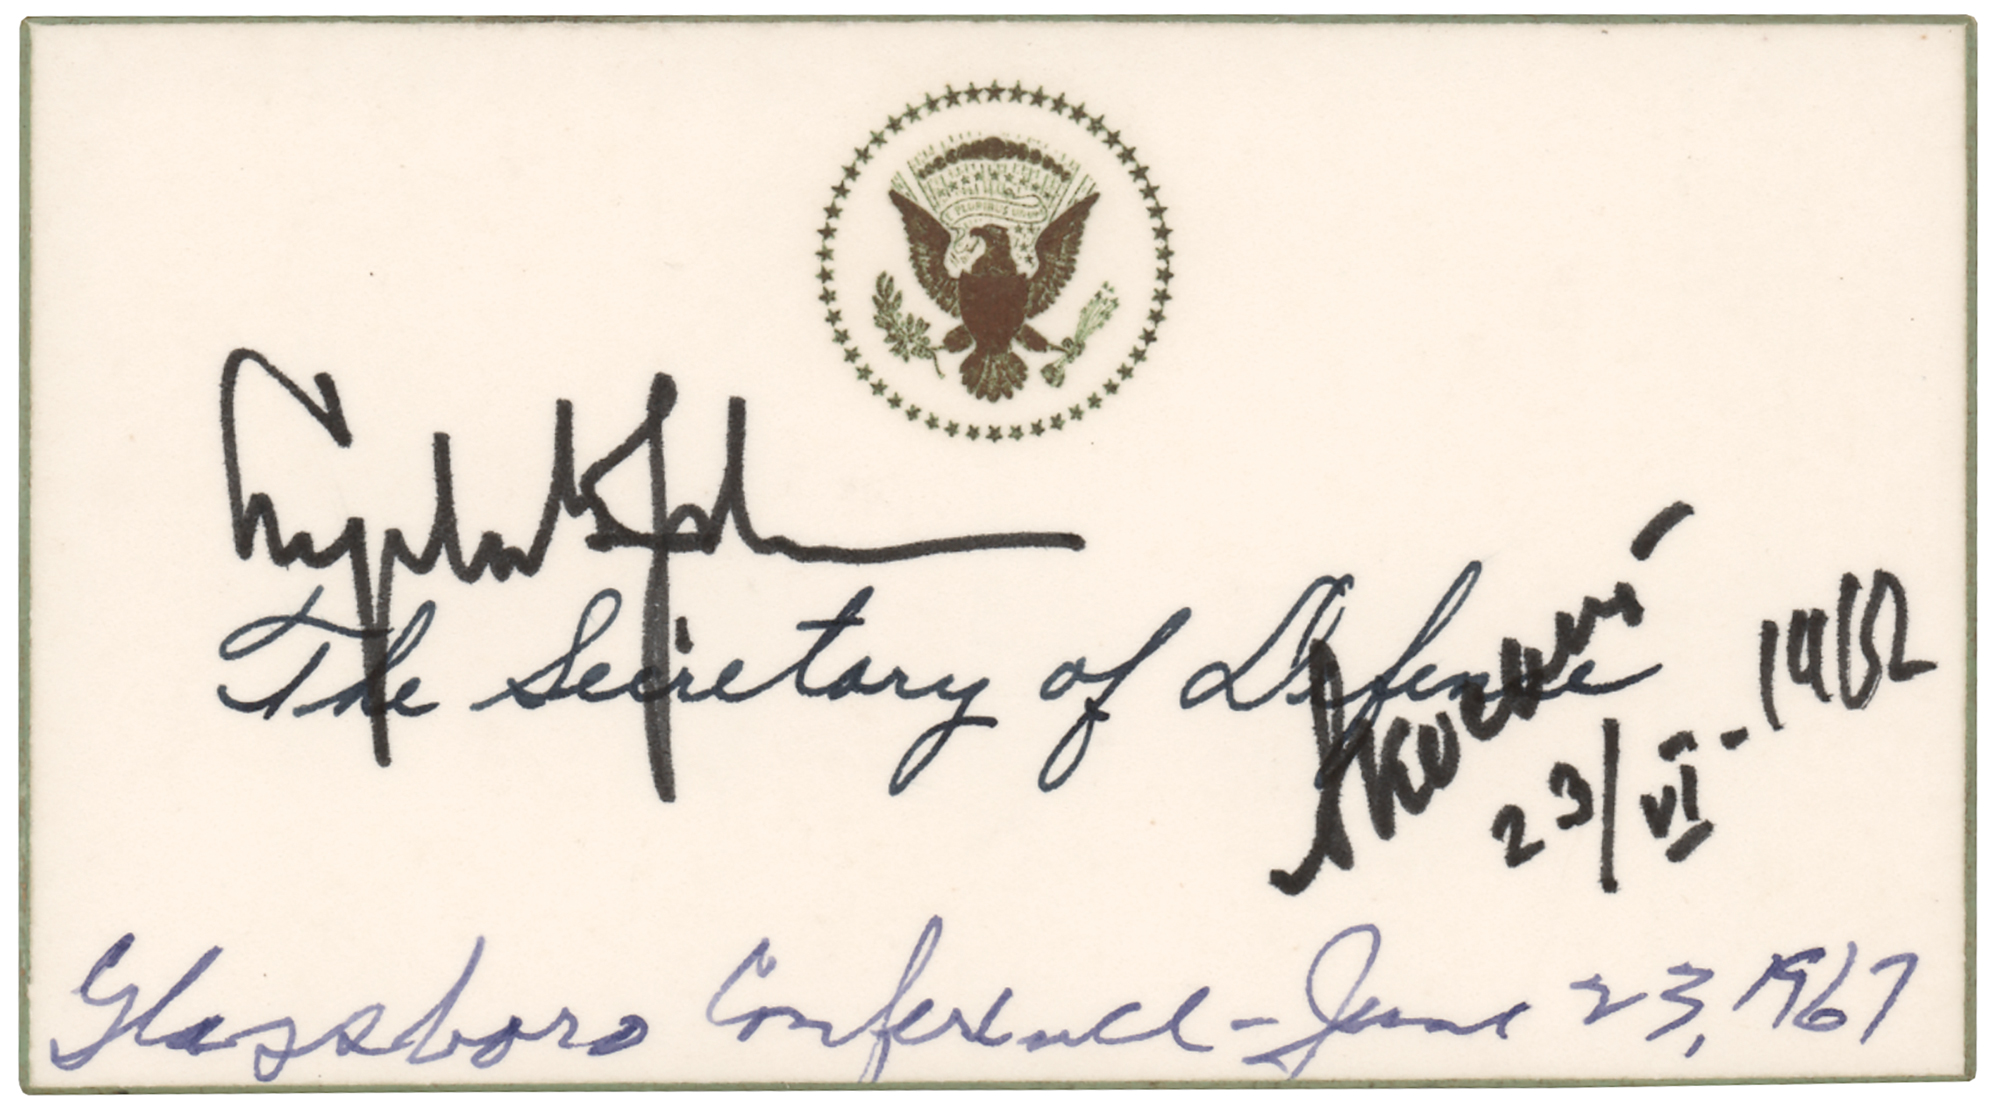 E PLURIBUS UNUM
The Secretary of Defense
23/VI-1967
Glassboro Conference - June 23, 1967